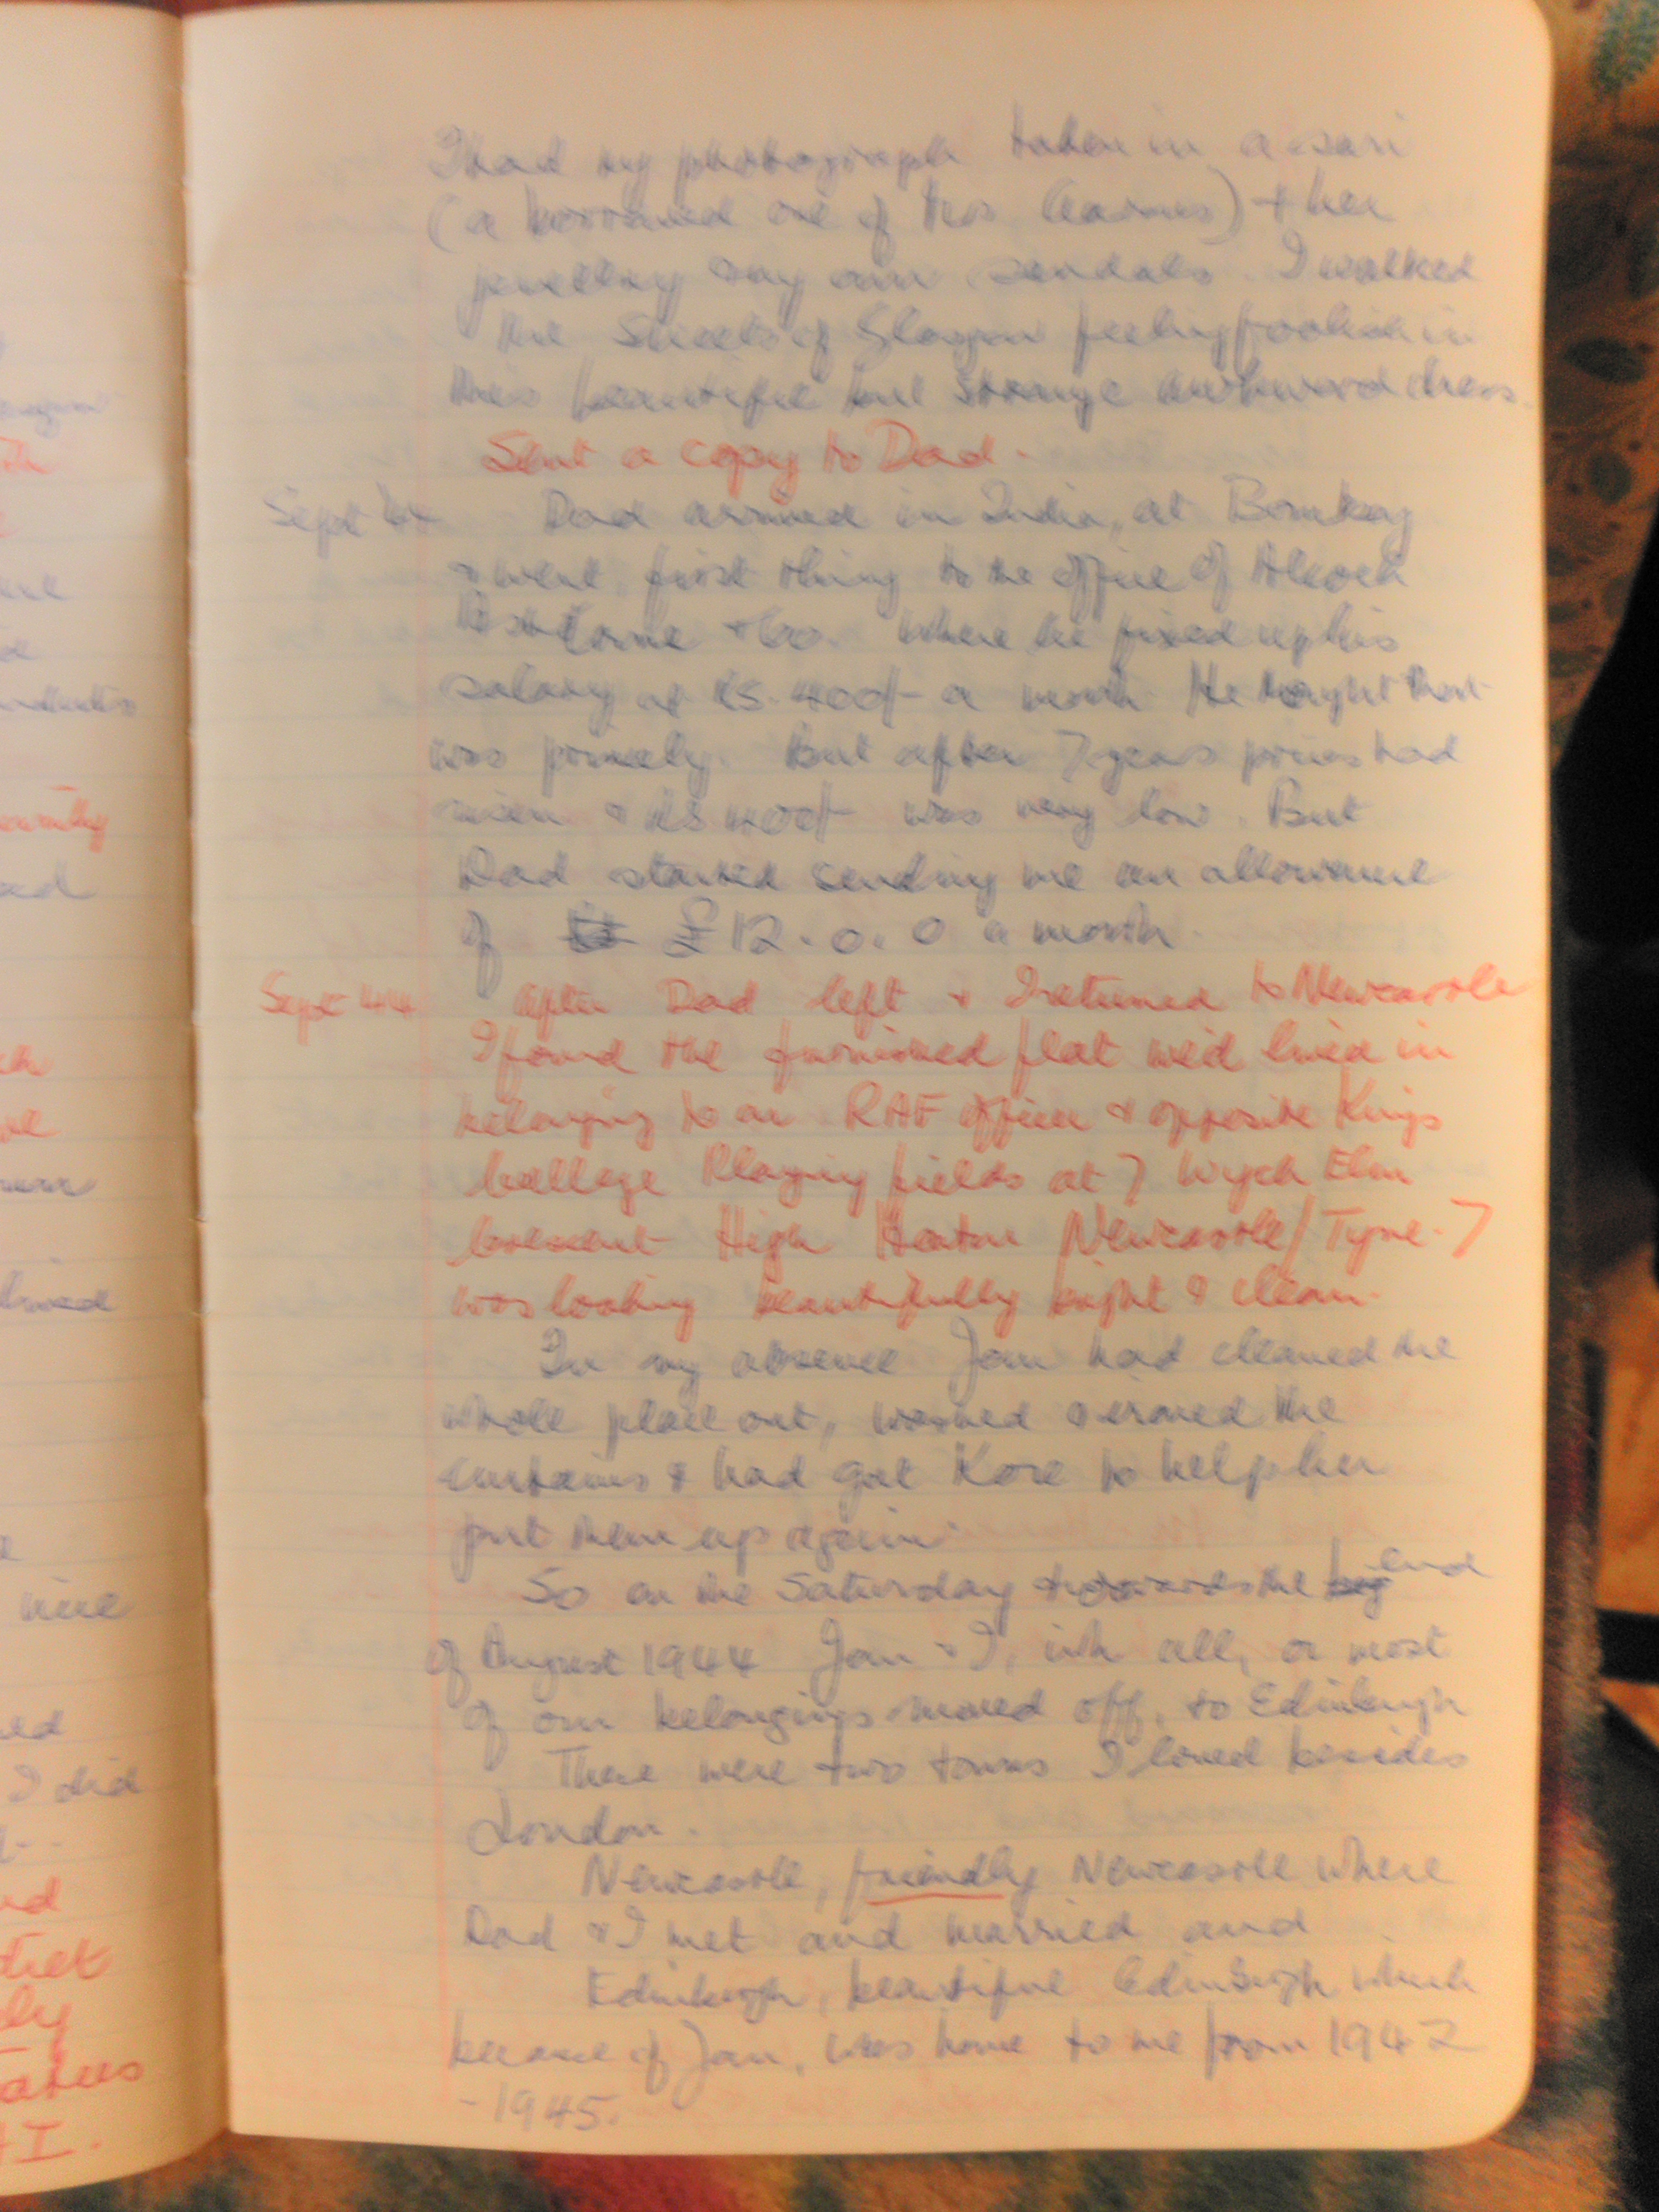 I had my photograph taken in a sari
(a borrowed one of Mrs ) + her
jewellry & my own sandals. I walked
the streets of Glasgow feeling foolish in
this beautiful but strange awkward dress.
Sent a copy to Dad.
Sept 44 Dad arrived in India, at Bombay
& went first thing to the office of Alcock
Ashdowne & Co. where he fixed up his
salary at Rs. 400/- a month. He thought that
was princely. But after 7 years prices had
risen & Rs 400/- was very low. But
Dad started sending me an allowance
of £12.0.0 a month.
Sept 44 After Dad left & I returned to Newcastle
I found the furnished flat we'd lived in
belonging to an RAF officer & opposite Kings
College Playing fields at 7 Wych Elm
Crescent High Heaton Newcastle/Tyne. 7
was looking beautifully bright & clean.
In my absence Jan had cleaned the
whole place out, washed & ironed the
curtains & had got Kore to help her
put them up again.
So on the Saturday towards the end
of August 1944 Jan & I, with all, or most
of our belongings moved off, to Edinburgh
There were two towns I loved besides
London.
Newcastle, friendly Newcastle where
Dad & I met and married and
Edinburgh, beautiful Edinburgh which
because of Jan, was home to me from 1942
-1945.